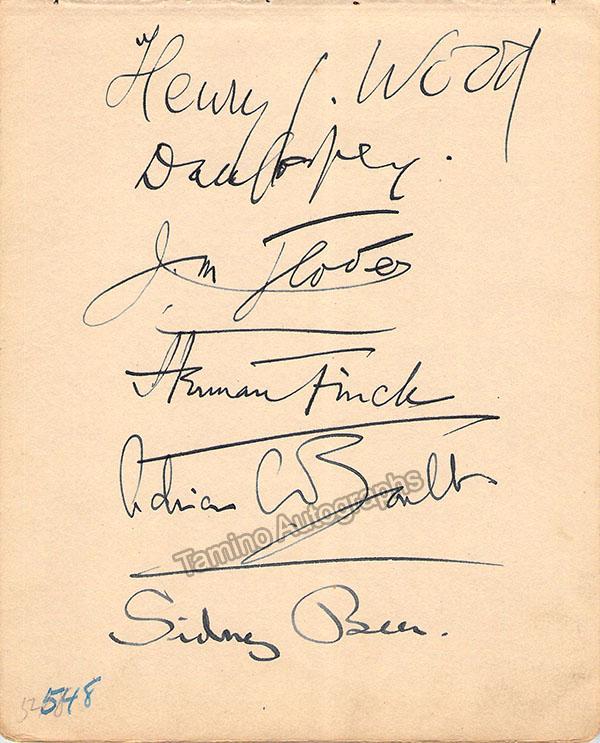 Henry J. Wood
Dan Godfrey.
J. M. Glover
Herman Finck
Adrian C Boult
Tamino Autographs
Sidney Beer.
548